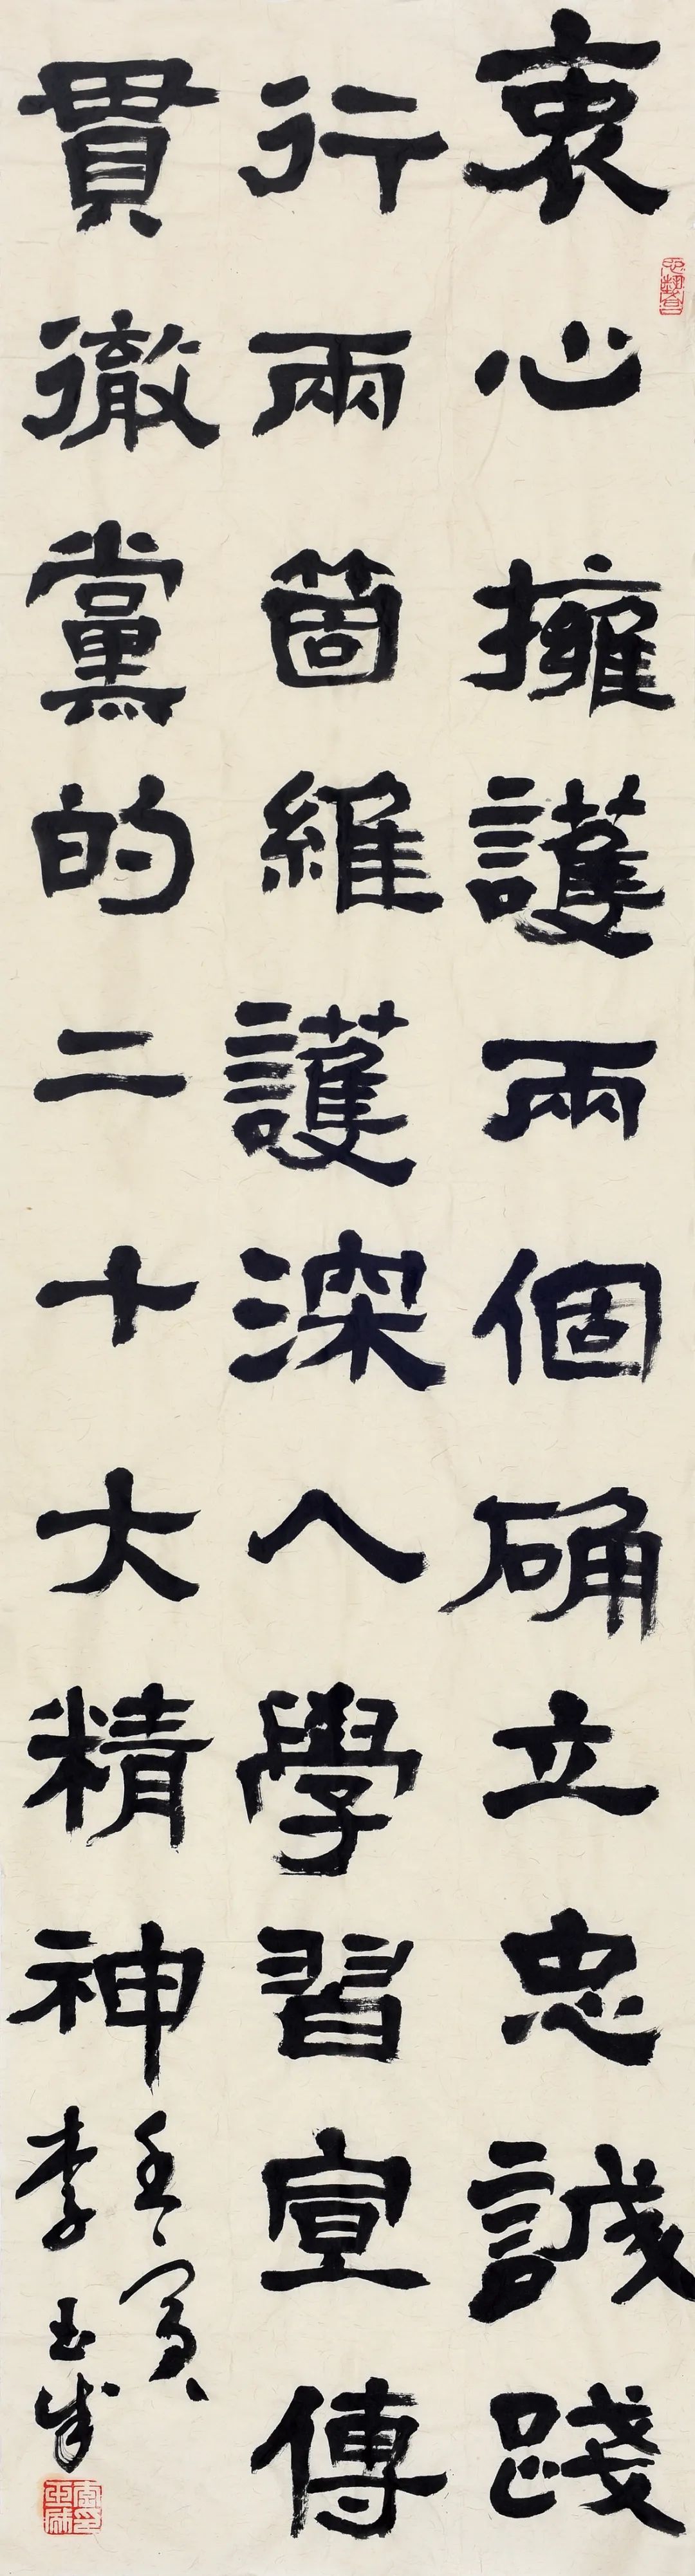 衷心擁護兩個确立忠誠踐
行兩箇維護深入學習宣傳
貫徹黨的二十大精神
壬寅
李玉成